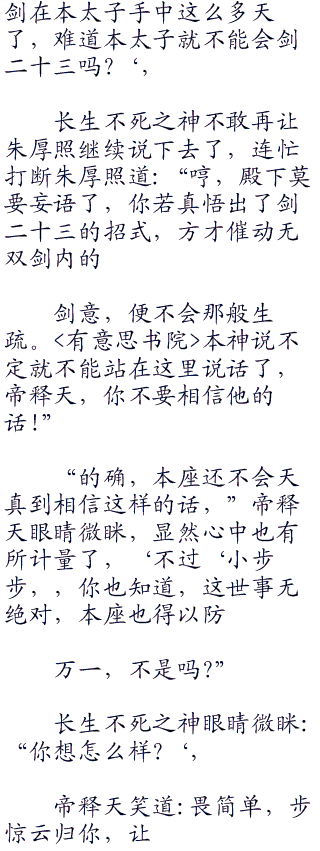 剑在本太子手中这么多天
了，难道本太子就不能会剑
二十三吗？‘，
长生不死之神不敢再让
朱厚照继续说下去了，连忙
打断朱厚照道：“哼，殿下莫
要妄语了，你若真悟出了剑
二十三的招式，方才催动无
双剑内的
剑意，便不会那般生
疏。<有意思书院>本神说不
定就不能站在这里说话了，
帝释天，你不要相信他的
话！”
“的确，本座还不会天
真到相信这样的话，”帝释
天眼睛微眯，显然心中也有
所计量了，‘不过‘小步
步，，你也知道，这世事无
绝对，本座也得以防
万一，不是吗？”
长生不死之神眼睛微眯：
“你想怎么样？‘，
帝释天笑道：畏简单，步
惊云归你，让